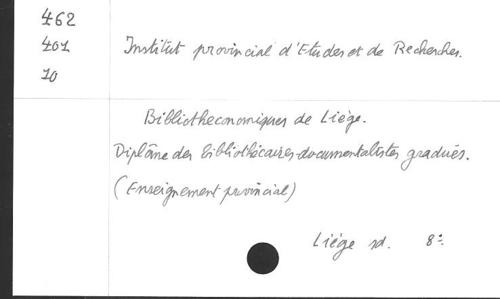 462
401 Institut provincial d'Etudes et de Recherches.
10
Bibliothéconomiques de Liège.
Diplôme des bibliothécaires-documentalistes gradués.
(Enseignement provincial)
Liège sd. 8°.